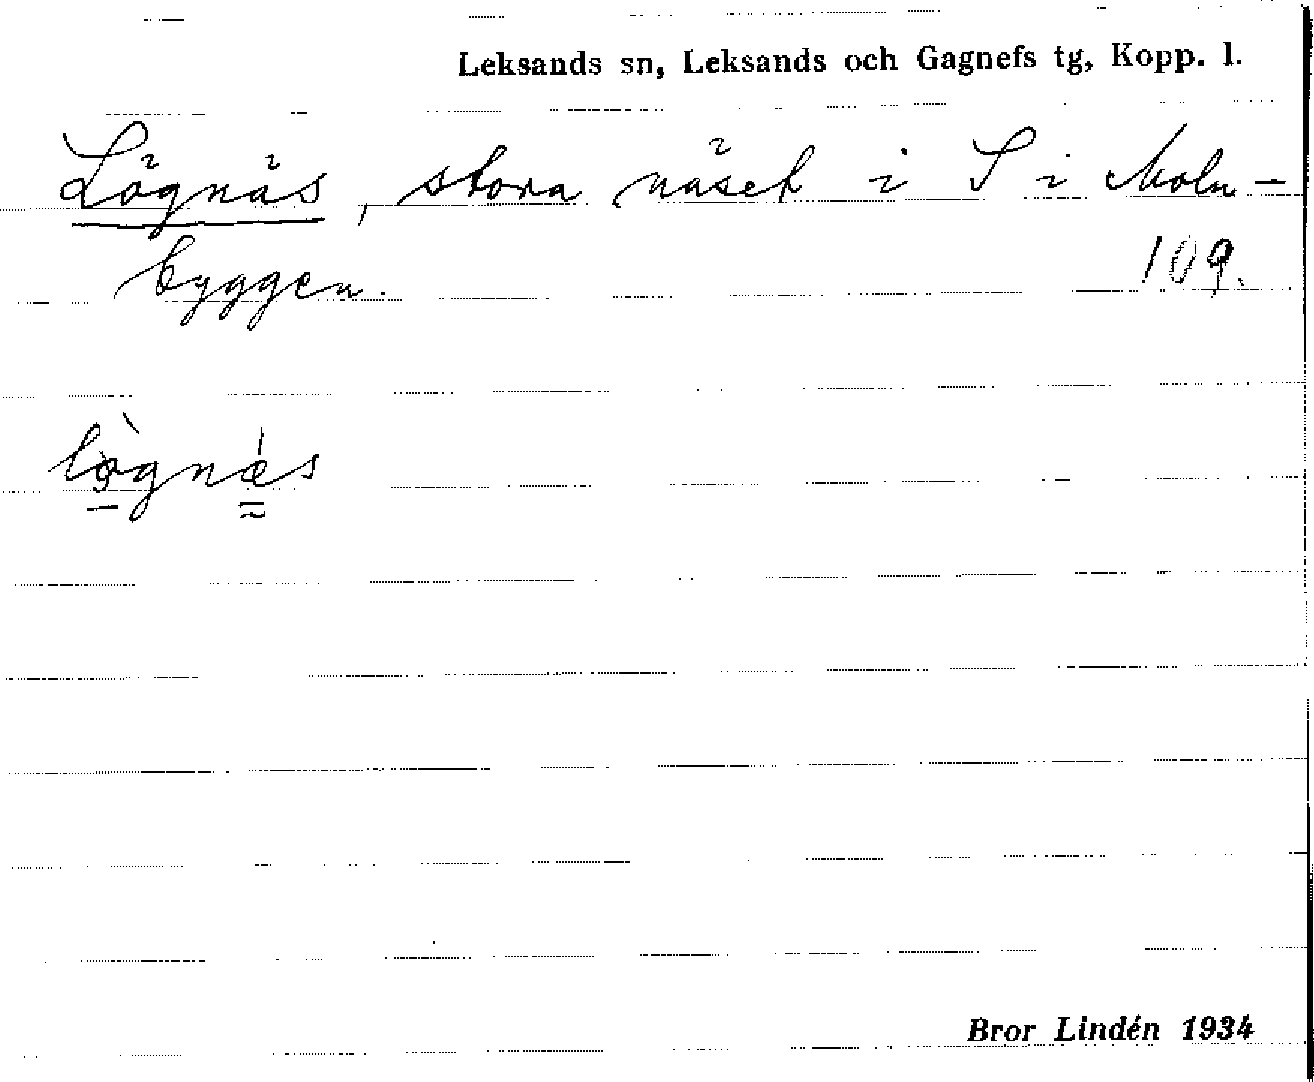 Leksands sn, Leksands och Gagnefs tg, Kopp. l.
Lögnäs, stora näset i S i Moln-
byggen. 109.
lògnæs
Bror Lindén 1934